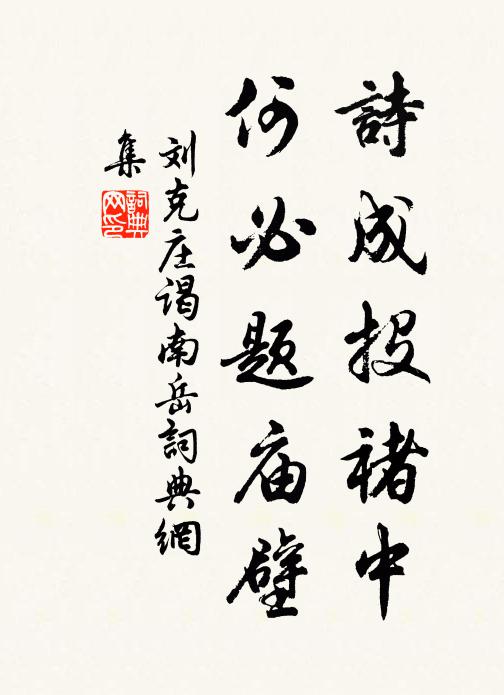 詩成投褚中
何必题庙壁
刘克庄谒南岳詞典網
集
詞典網印